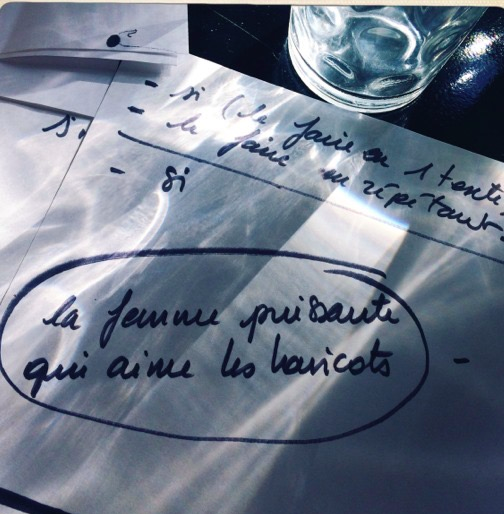 - si (le faire en 1 tente
- le faire en répétant.
- si
la femme puissante
qui aime les haricots -